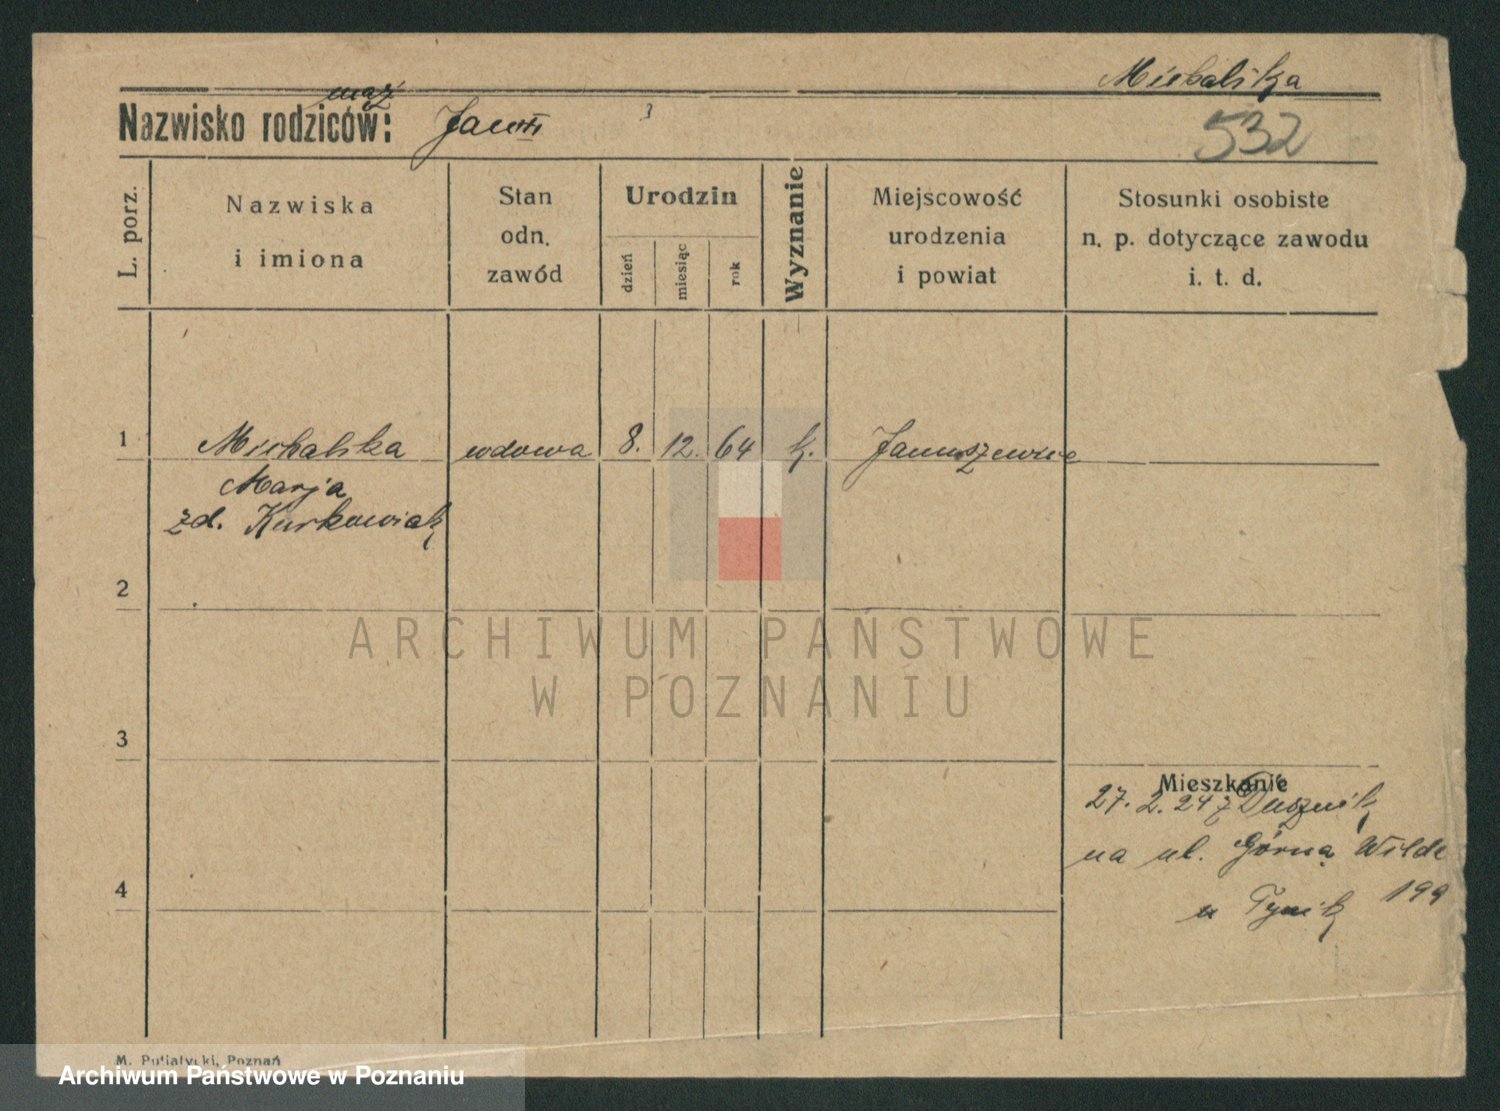 Michalska
mąż
Nazwisko rodziców:
532
L. porz.
Nazwiska
i imiona
Stan
odn.
zawód
Urodzin
dzień
miesiąc
rok
Wyznanie
Miejscowość
urodzenia
i powiat
Stosunki osobiste
n. p. dotyczące zawodu
i. t. d.
1
Michalska wdowa 8. 12. 64 k. Januszewice
Marja
zd. Kurkowiak
2
ARCHIWUM PAŃSTWOWE
W POZNANIU
3
Mieszkanie
27. 2. 24 z Dusznik
na ul. Górną Wilde
4
199
u
M. Putiatycki, Poznań
Archiwum Państwowe w Poznaniu